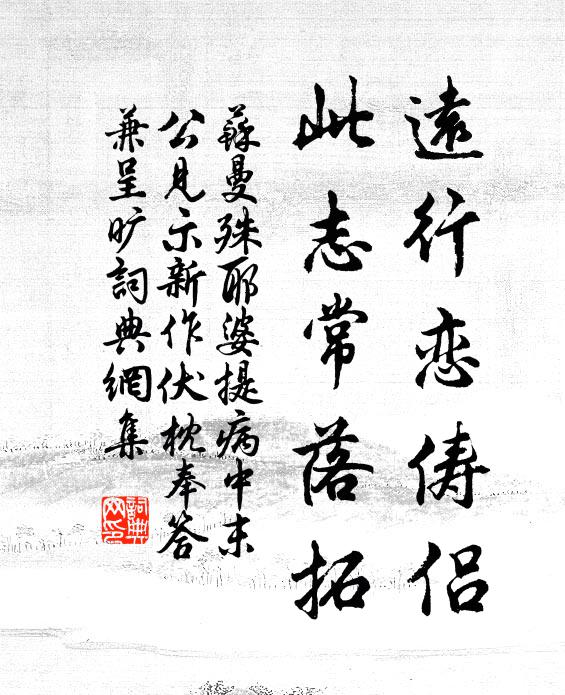 遠行恋俦侣
此志常落拓
蘇曼殊耶婆提病中末
公見示新作伏枕奉答
兼呈旷詞典網集
詞典網印